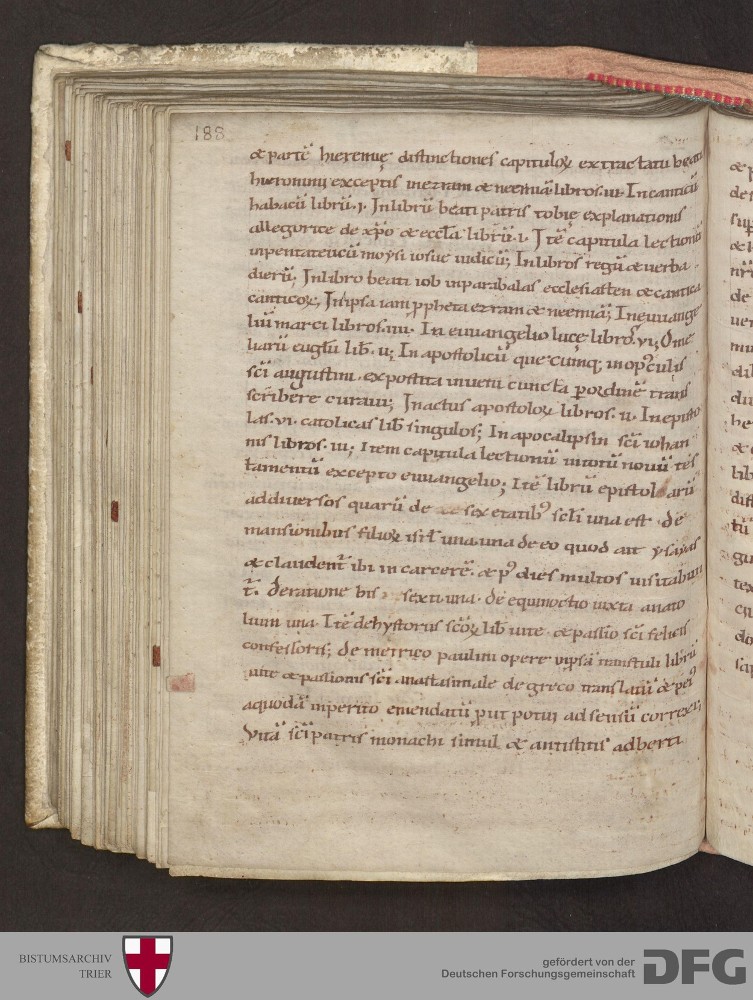 188
& partē hieremię distinctiones capituloꝝ ex tractatu beati
hieronimi exceptis in ezram & neemiā libros .iii. In canticū
habacū librū .i. In librū beati patris tobię explanationis
allegorice de xp̄o & eccl̄a librū .i. Itē capitula lectionū
in pentateucū moysi iosue iudicū; In libros regū & uerba
dierū; In libro beati iob in parabalas ecclesiasten & cantica
canticoꝝ, In ipsa iam ppheta ezram & neemiā; In euuange
liū marci libros .iiii. In euuangelio luce libros .vi; Ome
liarū euḡłu lib̄. ii; In apostolicū que cūmq; in opꝰculis
sc̄i augustini exposita inueni cuncta p ordinē trans
scribere curaui; In actus apostoloꝝ libros .ii. In episto
las .vi. catolicas lib̄ singulos; In apocalipsin sc̄i iohan
nis libros .iii; Item capitula lectionū in totū nouū tes
tamentū excepto euuangelio; Itē librū epistolarū
ad diuersos quarū de sex etatibꝰ sc̄li una est . de
mansionibus filioꝝ isrl̄ una. una de eo quod ait ysaias
& claudent̄ ibi in carcerē. & pꝰ dies multos uisitabun
t̄. de ratione bis sexti una . de equinoctio iuxta anato
lium una. Itē de hystoriis sc̄oꝝ lib̄ uite . & passio sc̄i felicis
confessoris; de metrico paulini opere in psā transtuli librū
uite & passionis sc̄i anastasii male de greco translatū & peiꝰ
a quodā inperito emendatū put potui ad sensū correxi;
Vitā sc̄i patris monachi simul & antistitis adberti
BISTUMSARCHIV
TRIER
gefördert von der
Deutschen Forschungsgemeinschaft
DFG